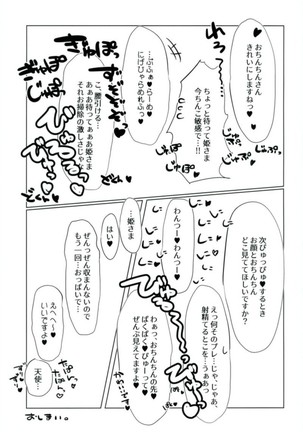 おちんちんさん
きれいにしますねっ♥
れろっ
ちょっと待って姫さま
今ちんこ敏感で…!!
…ぷふぁ♥らーめ♥
にげひゃらめれふっ♥
こ、腰引ける…
あぁあ待ってぁあ姫さま
それお掃除の激しさじゃ
次ぴゅっぴゅ♥するとき
お顔とおちんちん
どこ見ててほしいですか?
えっ何そのプレ…じゃ、じゃあ、
射精てるとこを…うぁあっ
わんつー♥わんつー♥
わぁっ、おちんちんの先♥
ぱくぱく♥ぴゅーって♥
ぜんぶ見えてますよ♥
…姫さま
はい♥
ぜんっぜん収まんないので
もう一回…おっぱいで…
えへへ〜♥
いいですよ♥
天使…
おしまい。